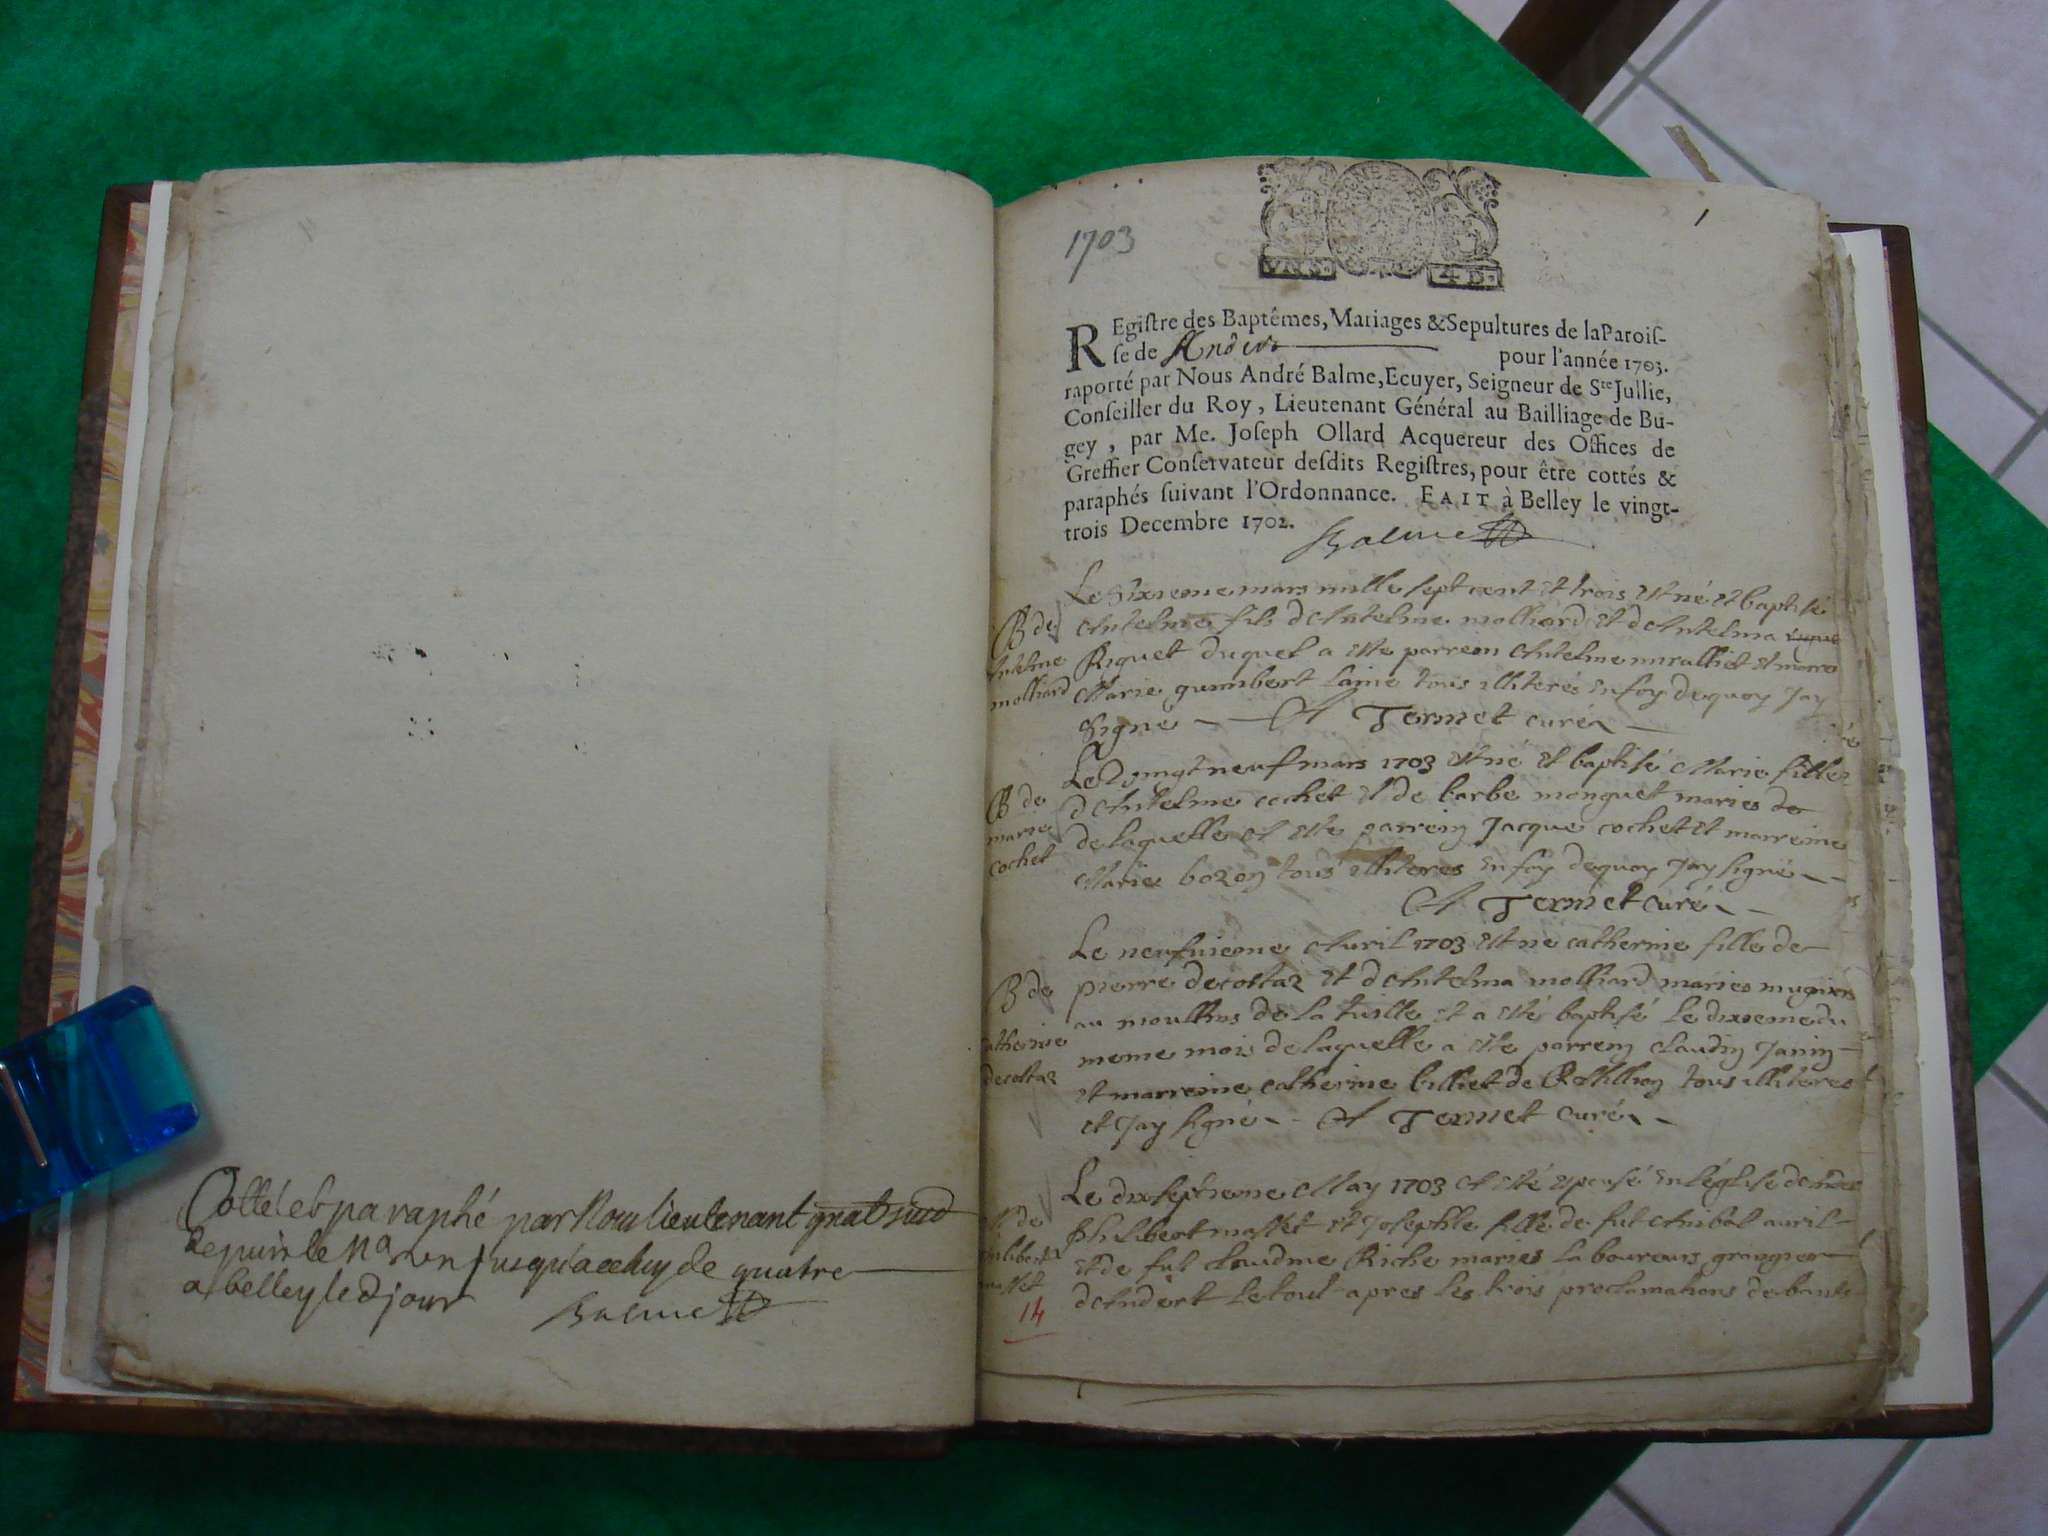 Cotté et paraphé par Nous lieutenant gnal susd
depuis le n° un jusqu'a celuy de quatre
a belley led jour Balme
1703
1
REgistre des Baptêmes, Mariages & Sepultures de la Parois-
se de Andert pour l'année 1703.
raporté par Nous André Balme, Ecuyer, Seigneur de Ste Jullie,
Conseiller du Roy, Lieutenant Général au Bailliage de Bu-
gey, par Me. Joseph Ollard Acquereur des Offices de
Greffier Conservateur desdits Registres, pour être cottés &
paraphés suivant l'Ordonnance. FAIT à Belley le vingt-
trois Decembre 1702. Balme
B de
Antelme
molliard
Le sixieme mars mille sept cent et trois est né et baptisé
Antelme fils d'Antelme molliard et d'Antelma
Riquet duquel a este parrein Antelme miralliet et marre
Marie gumbert laine tous illiterés en foy de quoy Jay
signé A Termet curé
B de
marie
cochet
Le vingt neuf mars 1703 est né et baptisé Marie fille
d'Antelme cochet et de barbe monguet maries de
de laquelle a este parrein Jacque cochet et marreine
Marie bozon tous illiteres en foy de quoy Jay signé
A Termet curé
B de
catherine
decostaz
Le neufvieme Avril 1703 est né catherine fille de
pierre decostaz et d'Antelma molliard maries mugniers
au moullins de la tuille et a esté baptisé le dixieme du
meme mois de laquelle a este parrein claudin Janin
et marreine catherine billiet de Rostillion tous illiteres
et Jay signé A Termet curé
M de
philibert
masset
14
Le dixseptieme May 1703 A esté epousé en l'église d'Andert
philibert masset et Josephte fille de fut Anibal auril
et de fut claudine Riche maries laboureurs grangier
d'Andert le tout apres les trois proclamations de bants